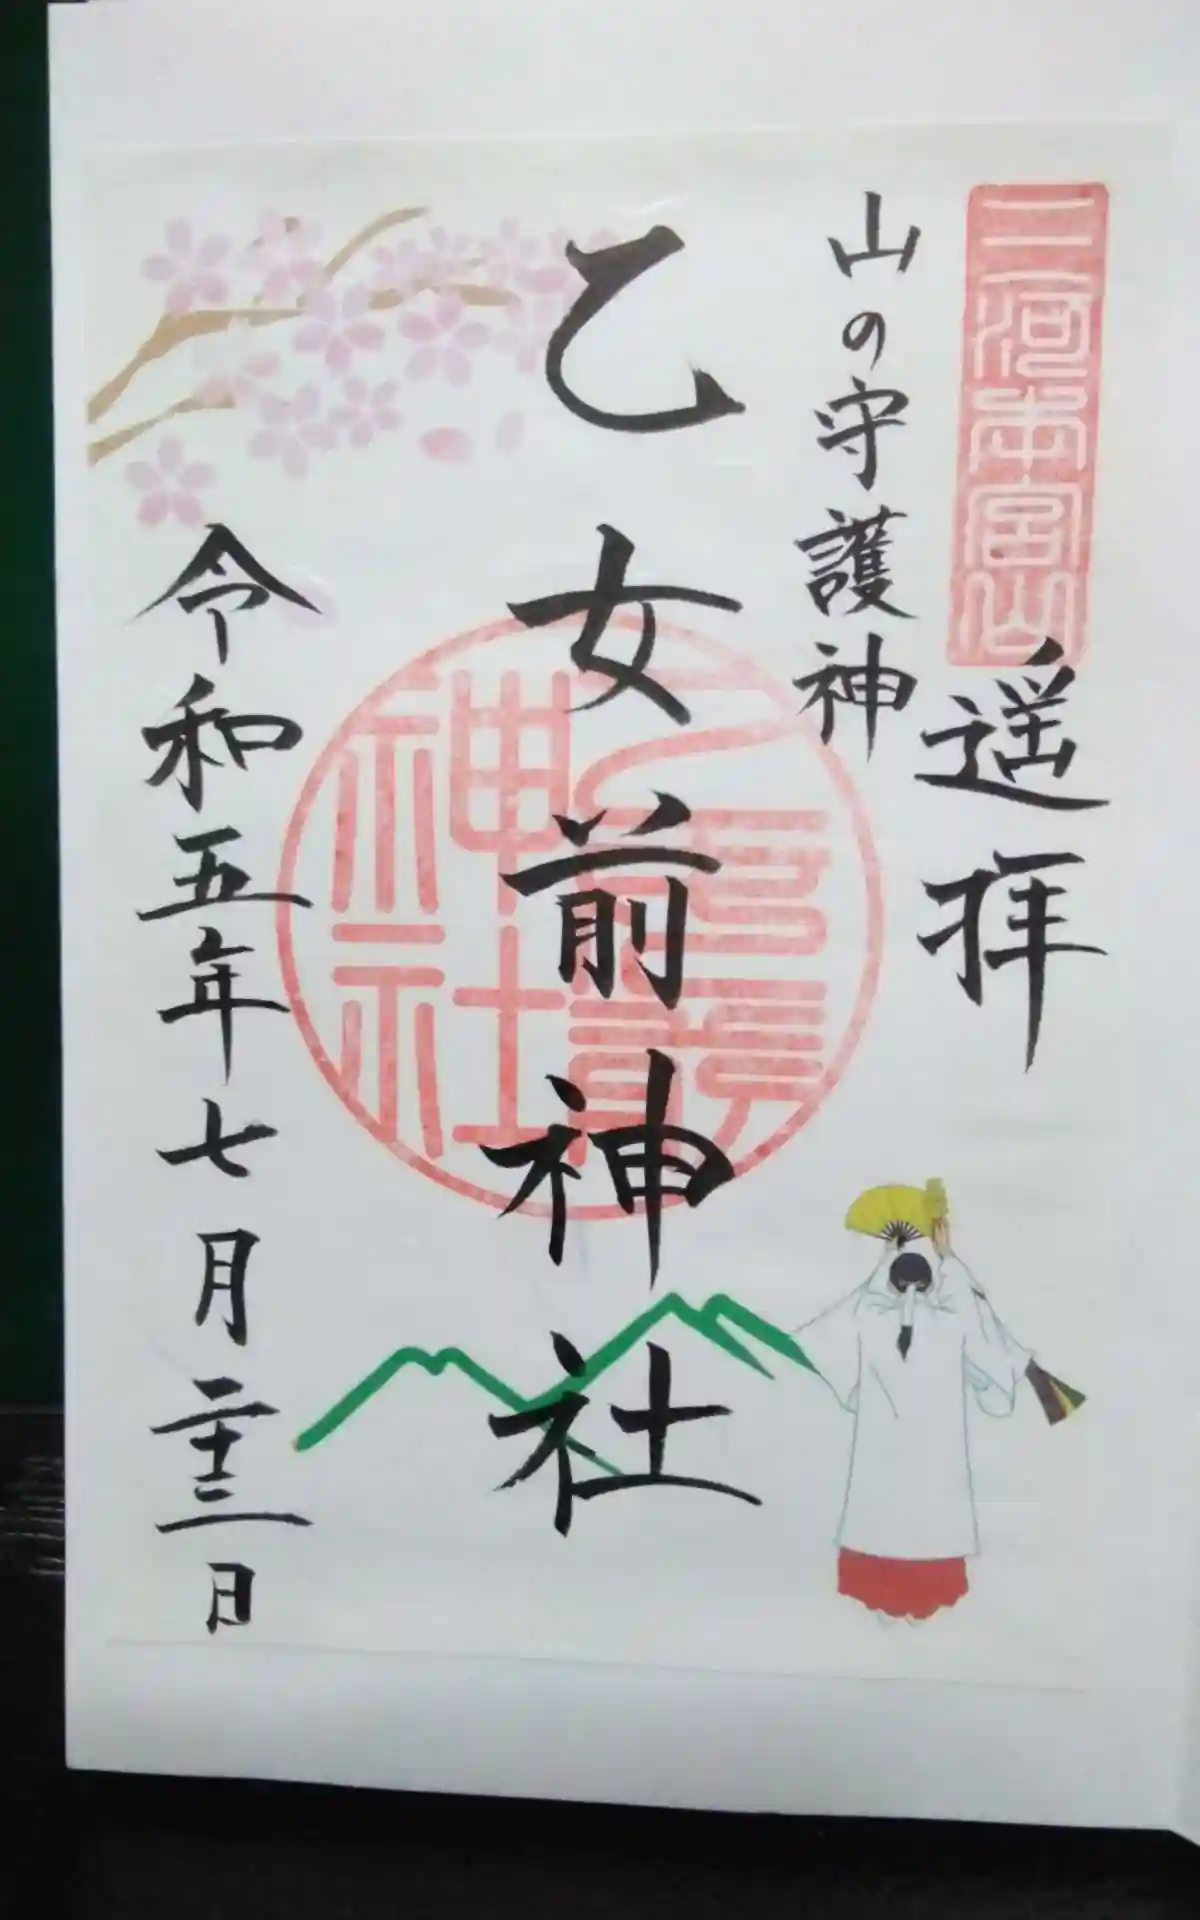 三河本宮山
遥拝
山の守護神
乙女前神社
令和五年七月二十三日